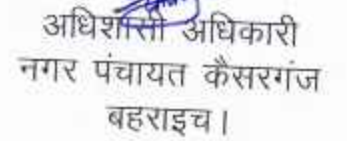 अधिशासी अधिकारी
नगर पंचायत कैसरगंज
बहराइच।